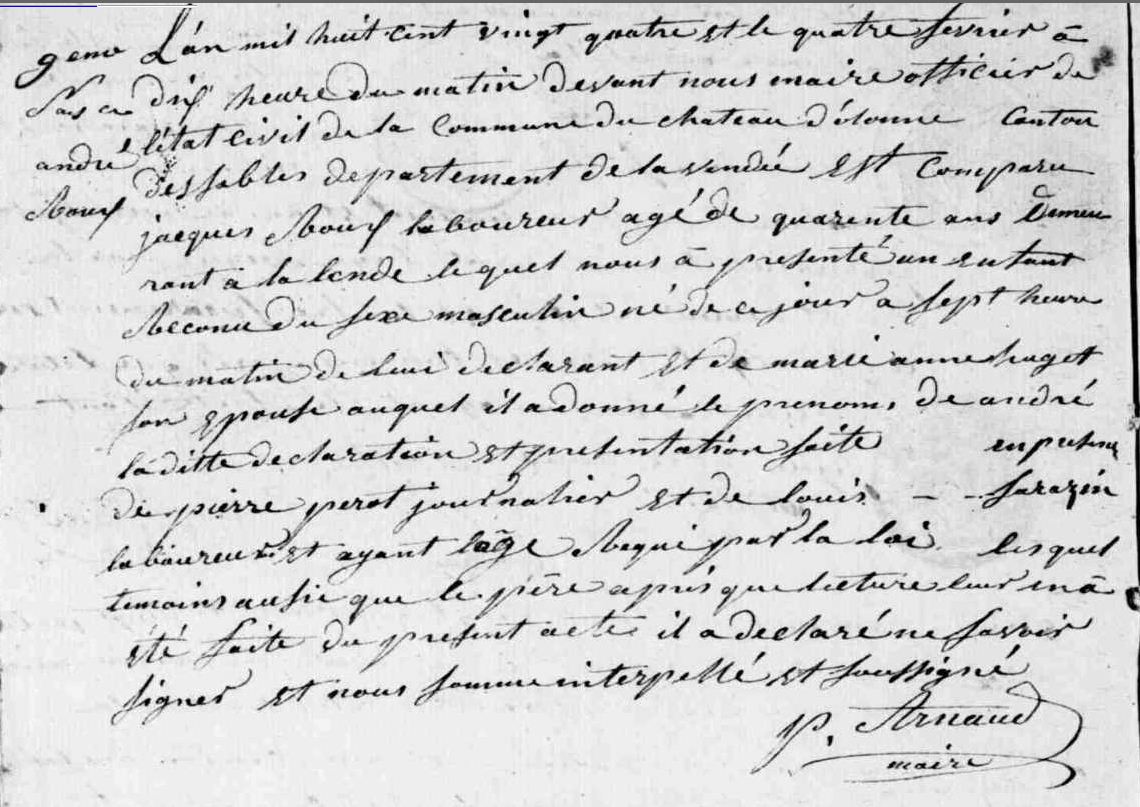 9eme
Nas ce
andré
Roux
L'an mil huit cent vingt quatre et le quatre fevrier à
dix heure du matin devant nous maire officier de
l'état civil de la Commune du chateau d'olonne Canton
des sables departement de la vendée Est Comparu
jacques Roux laboureur agé de quarente ans Demeu
rant à la lende lequel nous à presenté un enfant
Reconu du sexe masculin né de ce jour a sept heure
du matin de lui declarant et de marie anne huget
son Epouse auquel il a donné le prenoms de andré
la ditte declaration et presentation faite en presence
de pierre perot journalier et de louis - - sarazin
laboureur et ayant lage Requi par la loi lesquel
temoins ausie que le père après que lecture leur en à
été faite du present acte il a declaré ne savoir
signer et nous somme interpellé et soussigné
p. Arnaud
maire